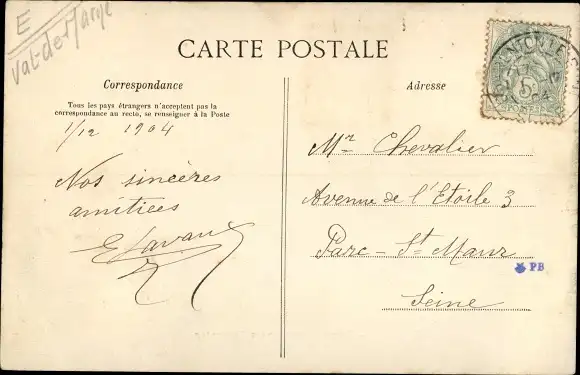 E
Val-de-Marne
CARTE POSTALE
Correspondance
Tous les pays étrangers n'acceptent pas la
correspondance au recto, se renseigner à la Poste
1/12 1904
Nos sincères
amitiées
Adresse
5
Mr Chevalier
Avenue de l'Etoile 3
Parc - St Maur
Seine
PB